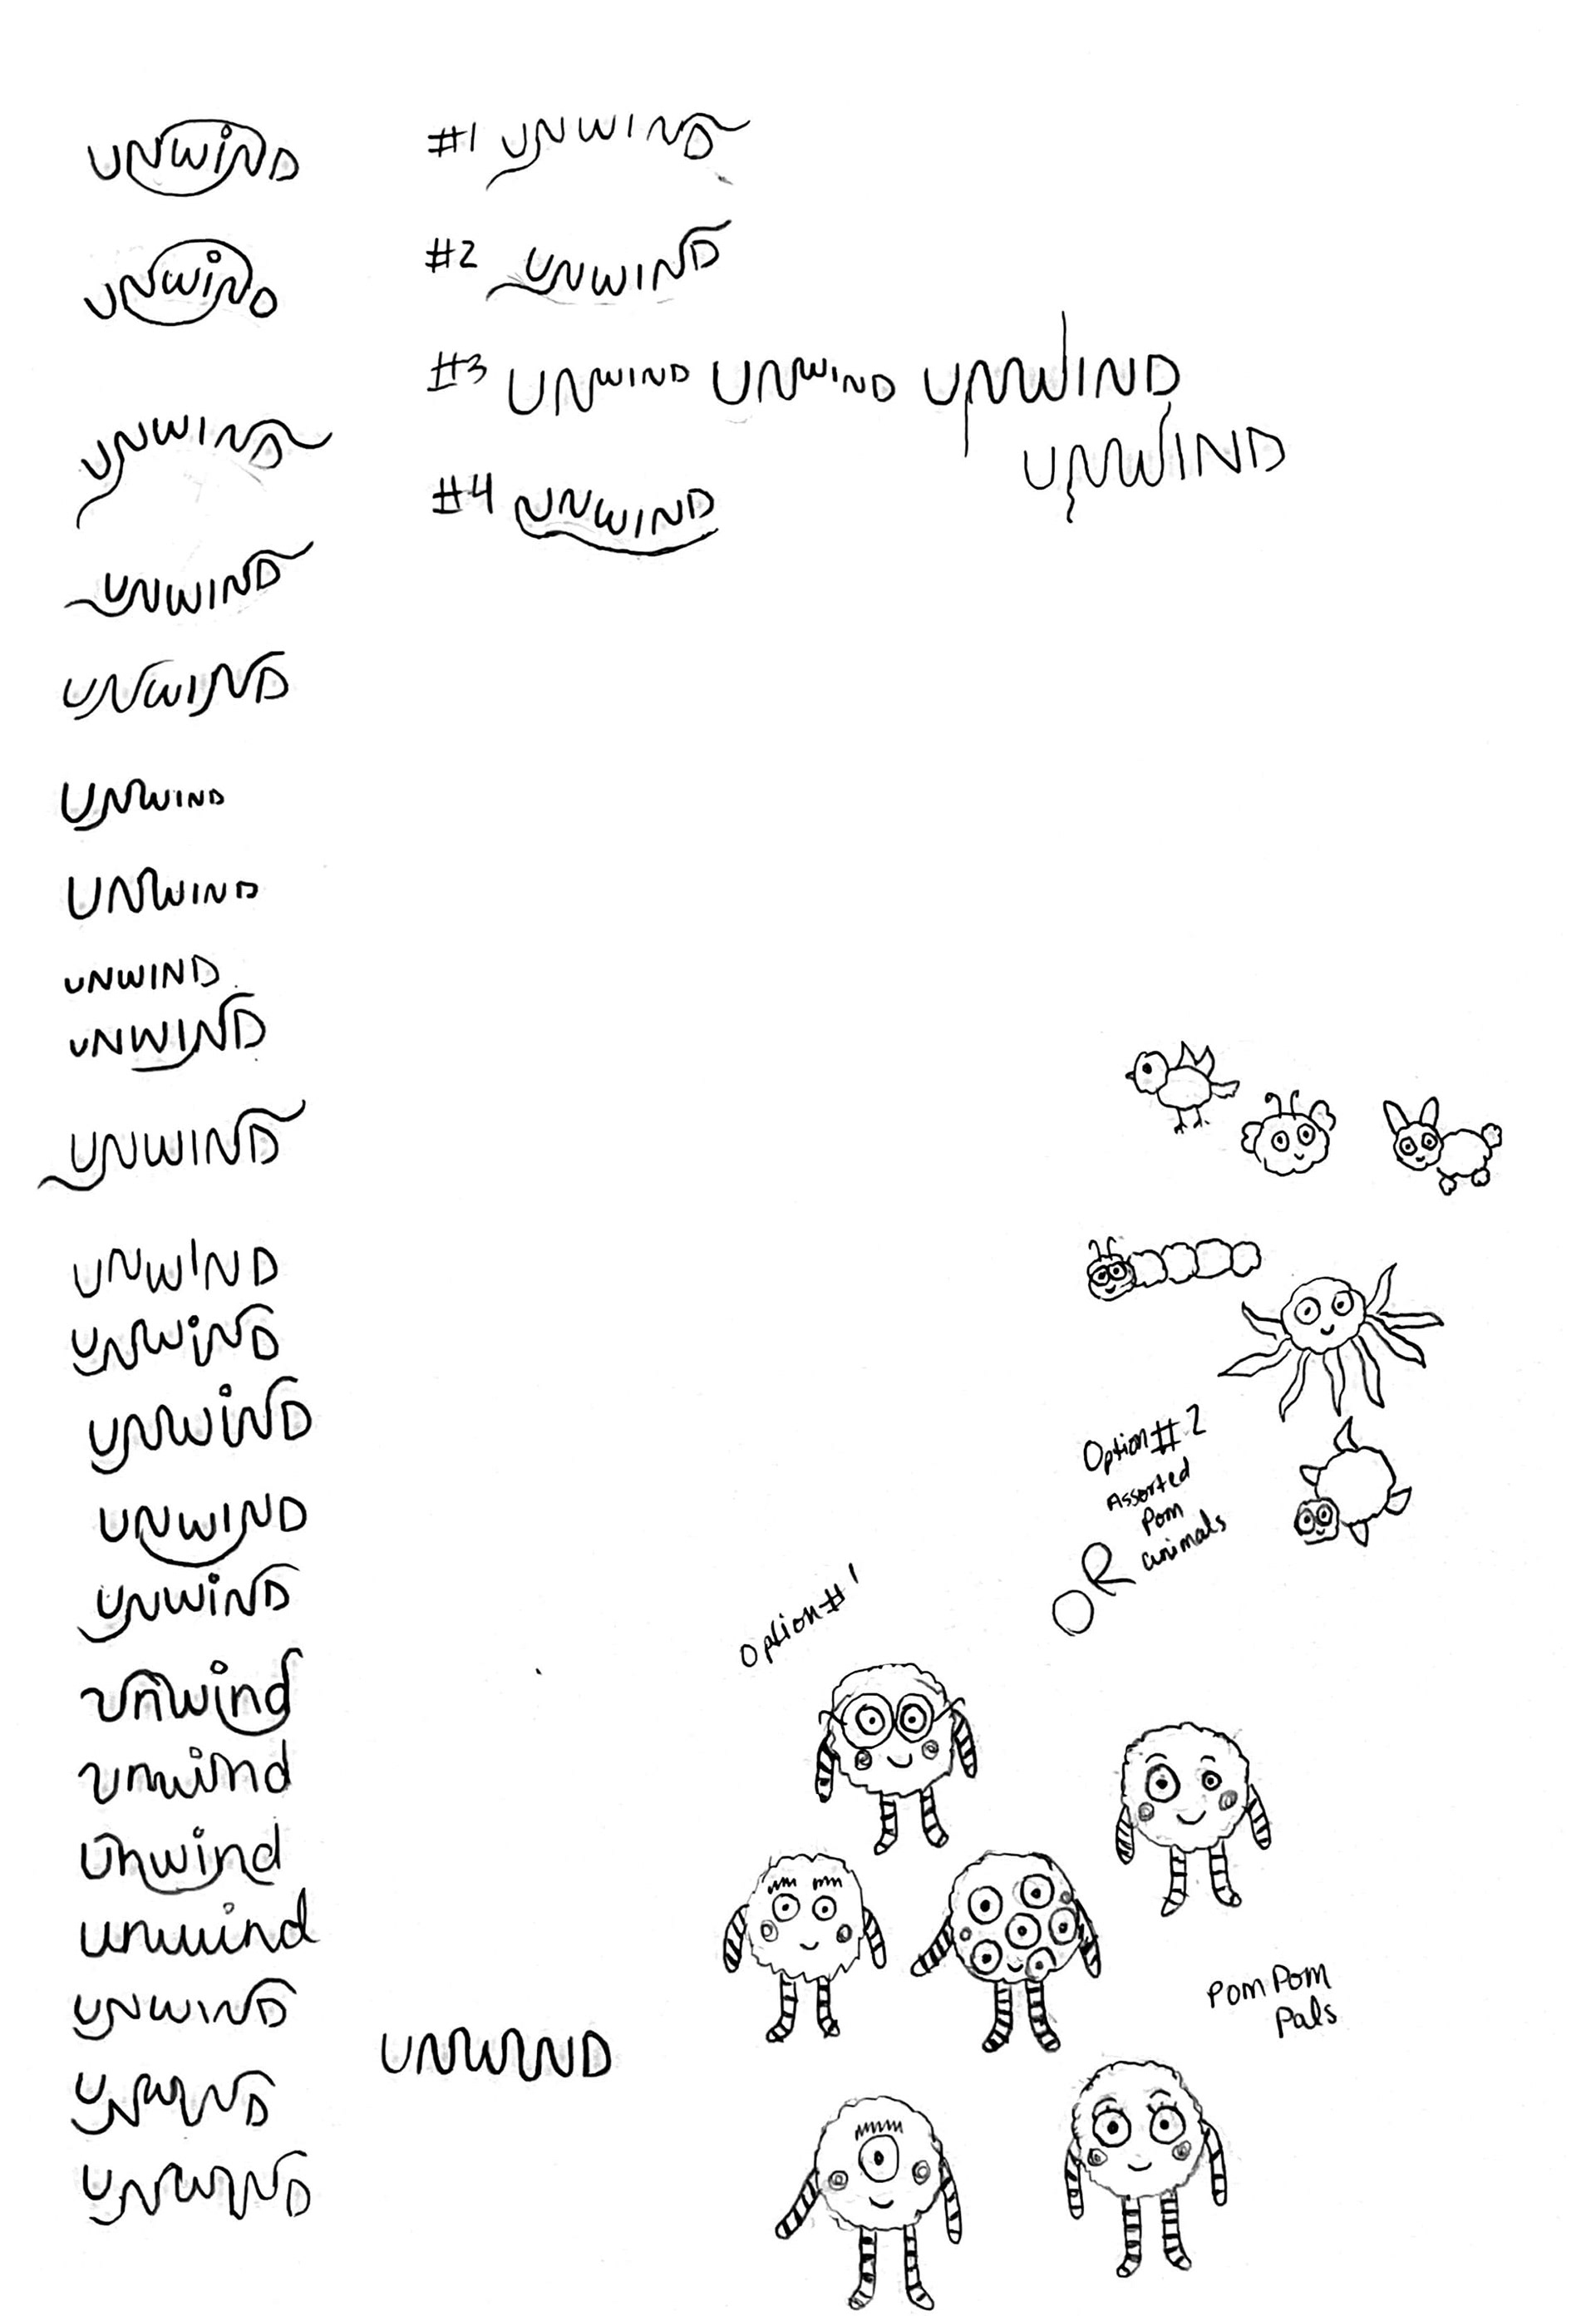 UNWiND
UNWiND
UNWIND
UNWIND
UNWIND
UNWIND
UNWIND
UNWIND
UNWIND
UNWIND
UNWIND
UNWiND
UNWiND
UNWIND
UNWiND
unwind
unwind
unwind
unwind
UNWIND
UNWIND
UNWIND
UNWIND
#1 UNWIND
#2 UNWIND
#3 UNWIND UNWIND UNWIND
UNWIND
#4 UNWIND
Option #2
Assorted
Pom
animals
OR
Option #1
Pom Pom
Pals